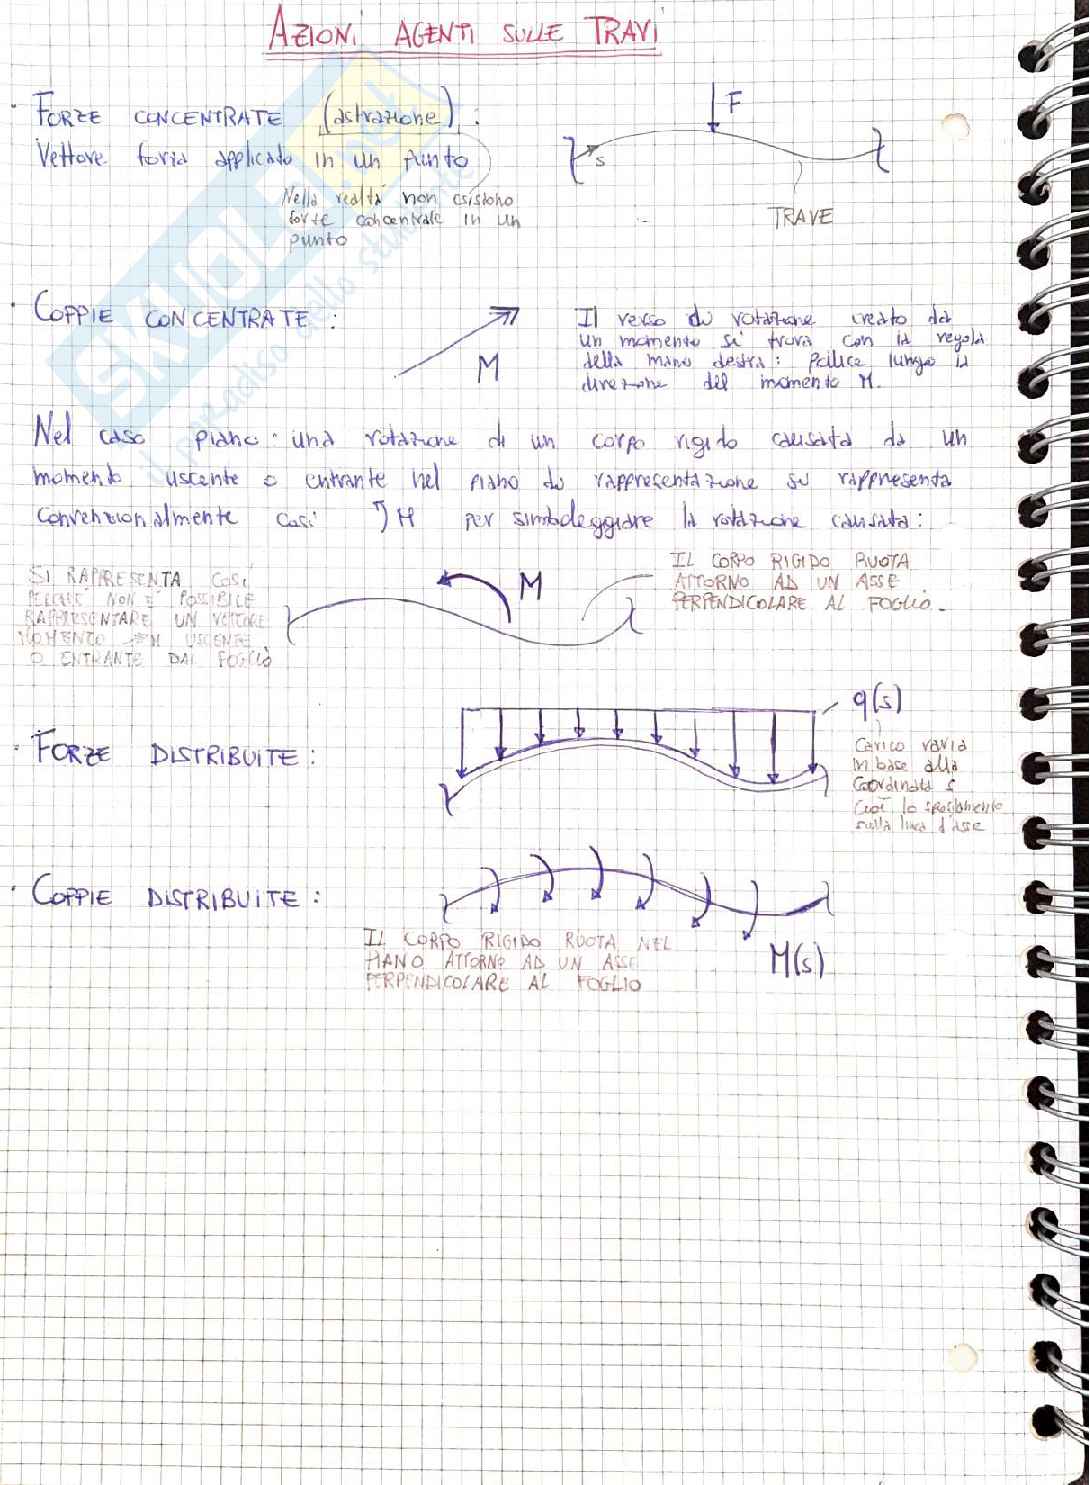 AZIONI AGENTI SULLE TRAVI
· FORZE CONCENTRATE (astrazione) :
Vettore forza applicato in un punto
Nella realtà non esistono
forze concentrate in un
punto
F
s
TRAVE
· COPPIE CONCENTRATE :
M
Il verso di rotazione creato da
un momento si trova con la regola
della mano destra: pollice lungo la
direzione del momento M.
Nel caso piano: una rotazione di un corpo rigido causata da un
momento uscente o entrante nel piano di rappresentazione si rappresenta
convenzionalmente così M per simboleggiare la rotazione causata:
SI RAPPRESENTA COSÌ
PERCHÉ NON È POSSIBILE
RAPPRESENTARE UN VETTORE
MOMENTO USCENTE
O ENTRANTE DAL FOGLIO
M
IL CORPO RIGIDO RUOTA
ATTORNO AD UN ASSE
PERPENDICOLARE AL FOGLIO.
· FORZE DISTRIBUITE :
q(s)
Carico varia
in base alla
coordinata s
cioè lo spostamento
sulla linea d'asse
· COPPIE DISTRIBUITE :
IL CORPO RIGIDO RUOTA NEL
PIANO ATTORNO AD UN ASSE
PERPENDICOLARE AL FOGLIO
M(s)
SKUOLA.net
il paradiso dello studente